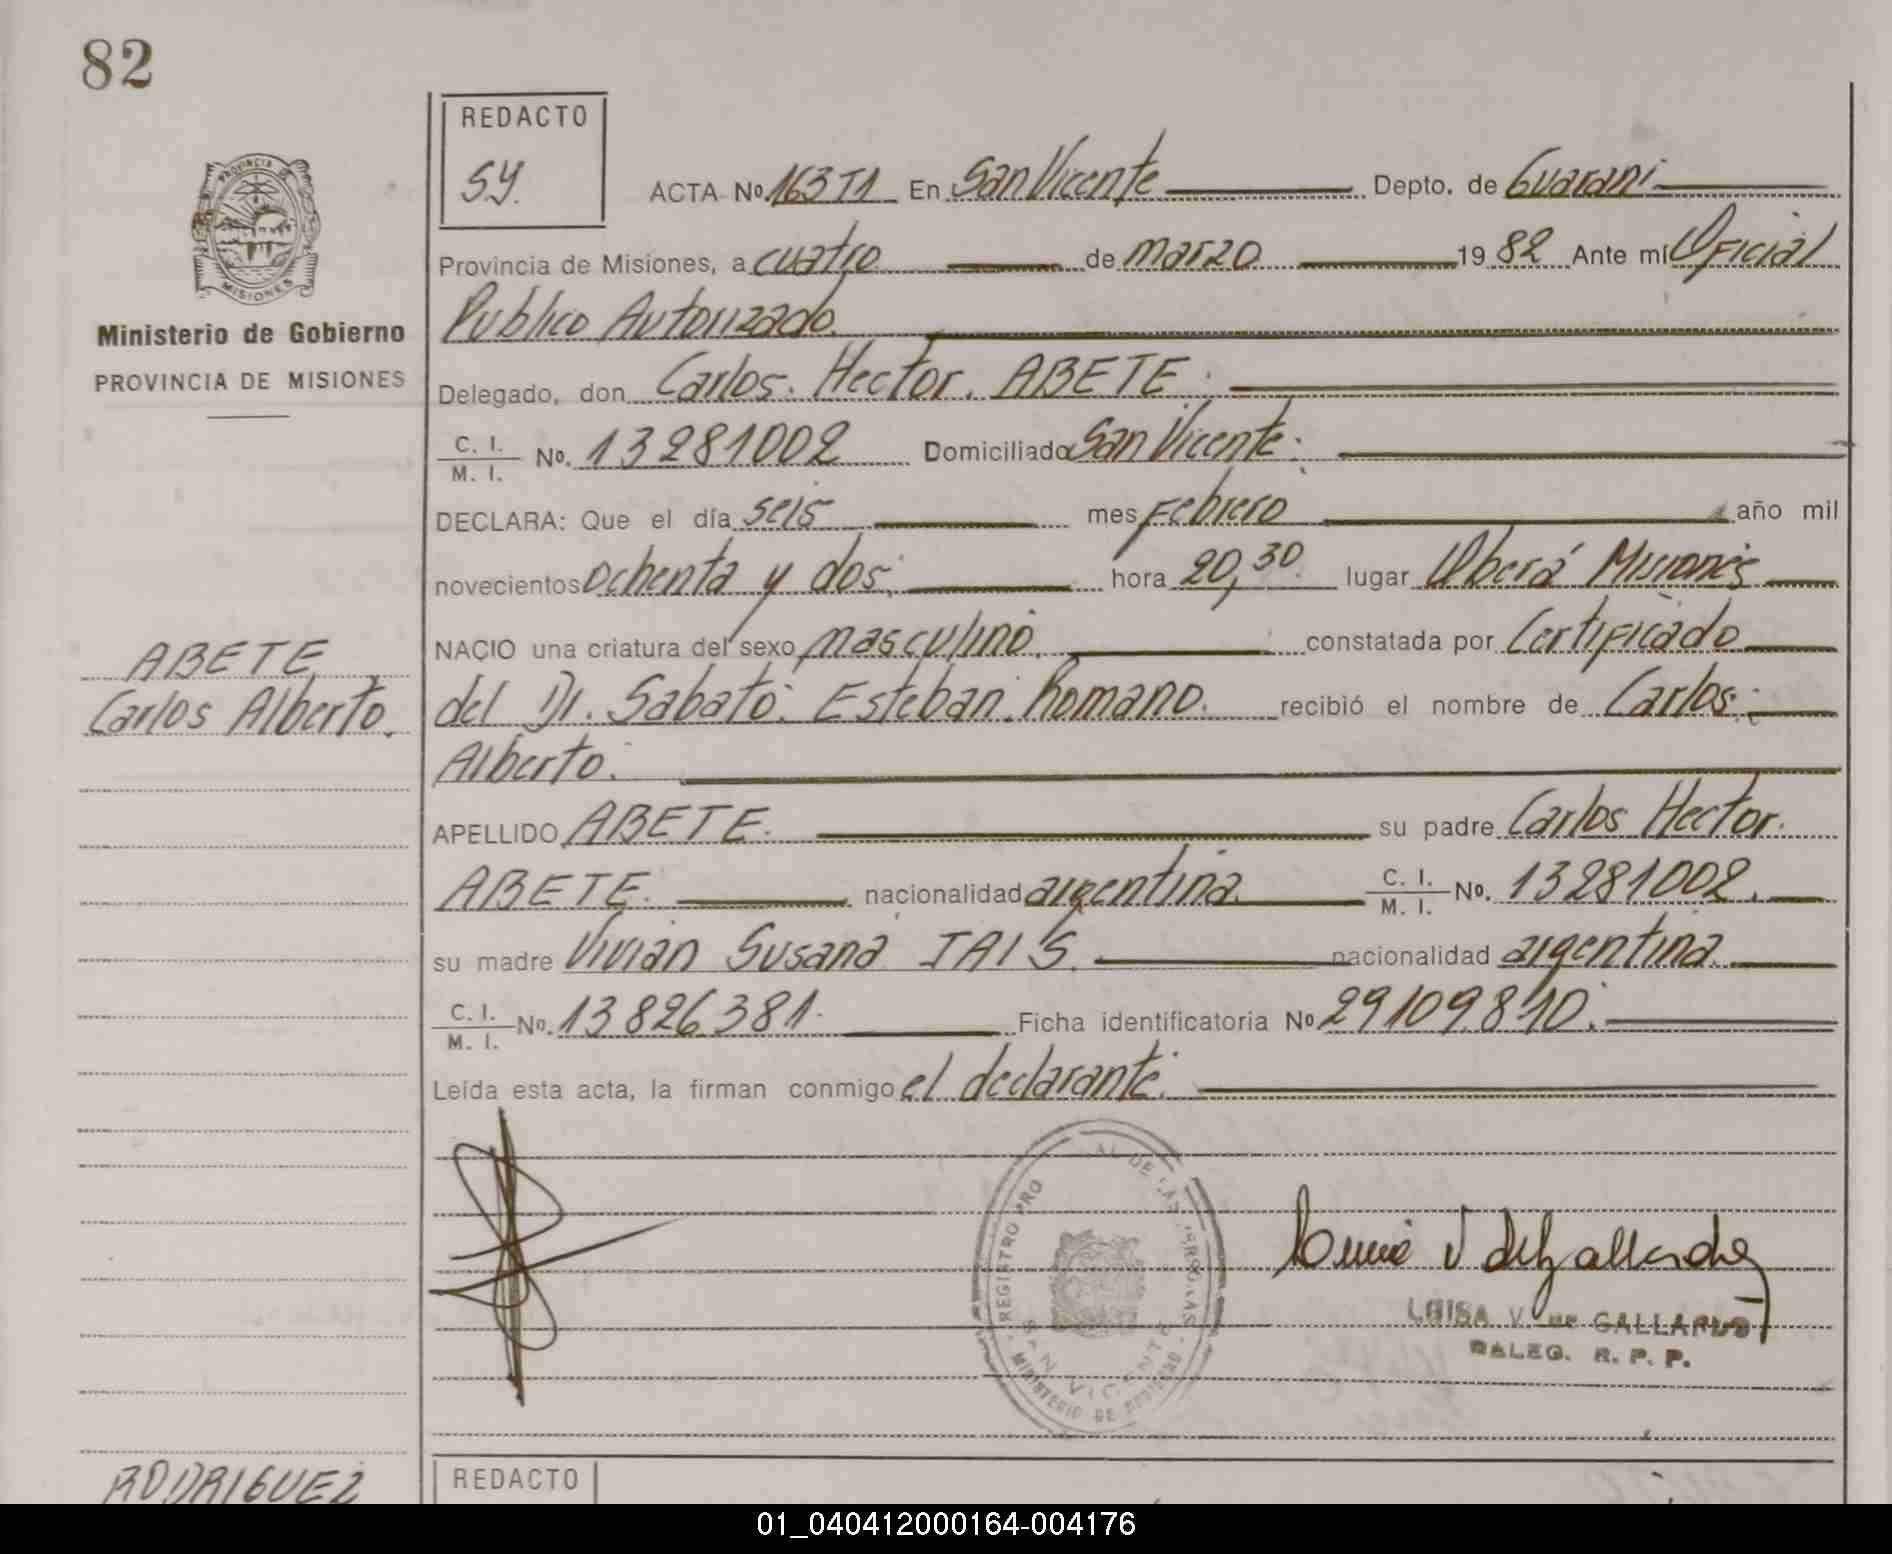 82
REDACTO
SY.
PROVINCIA DE
MISIONES
Ministerio de Gobierno
PROVINCIA DE MISIONES
ACTA No. 163 T1 En San Vicente Depto. de Guarani
Provincia de Misiones, a cuatro de marzo 1982 Ante mí Oficial
Publico Autorizado.
Delegado, don Carlos. Hector. ABETE.
C. I. / M. I. No. 13281002 Domiciliado San Vicente.
DECLARA: Que el día seis mes Febrero año mil
novecientos ochenta y dos. hora 20,30. lugar Oberá Misiones
NACIO una criatura del sexo masculino. constatada por Certificado
ABETE
del Dr. Sabato. Esteban. Romano. recibió el nombre de Carlos.
Carlos Alberto.
Alberto.
APELLIDO ABETE. su padre Carlos Hector.
ABETE. nacionalidad argentina. C. I. / M. I. No. 13281002.
su madre Vivian Susana IAIS. nacionalidad argentina.
C. I. / M. I. No. 13826381. Ficha identificatoria No 29109.810.
Leída esta acta, la firman conmigo el declarante.
REGISTRO PRO AL DE LAS PERSONAS
SAN VICENTE
MINISTERIO DE GOBIERNO
LUISA V. DE GALLARDO
DALEG. R. P. P.
RODRIGUEZ
REDACTO
01_040412000164-004176